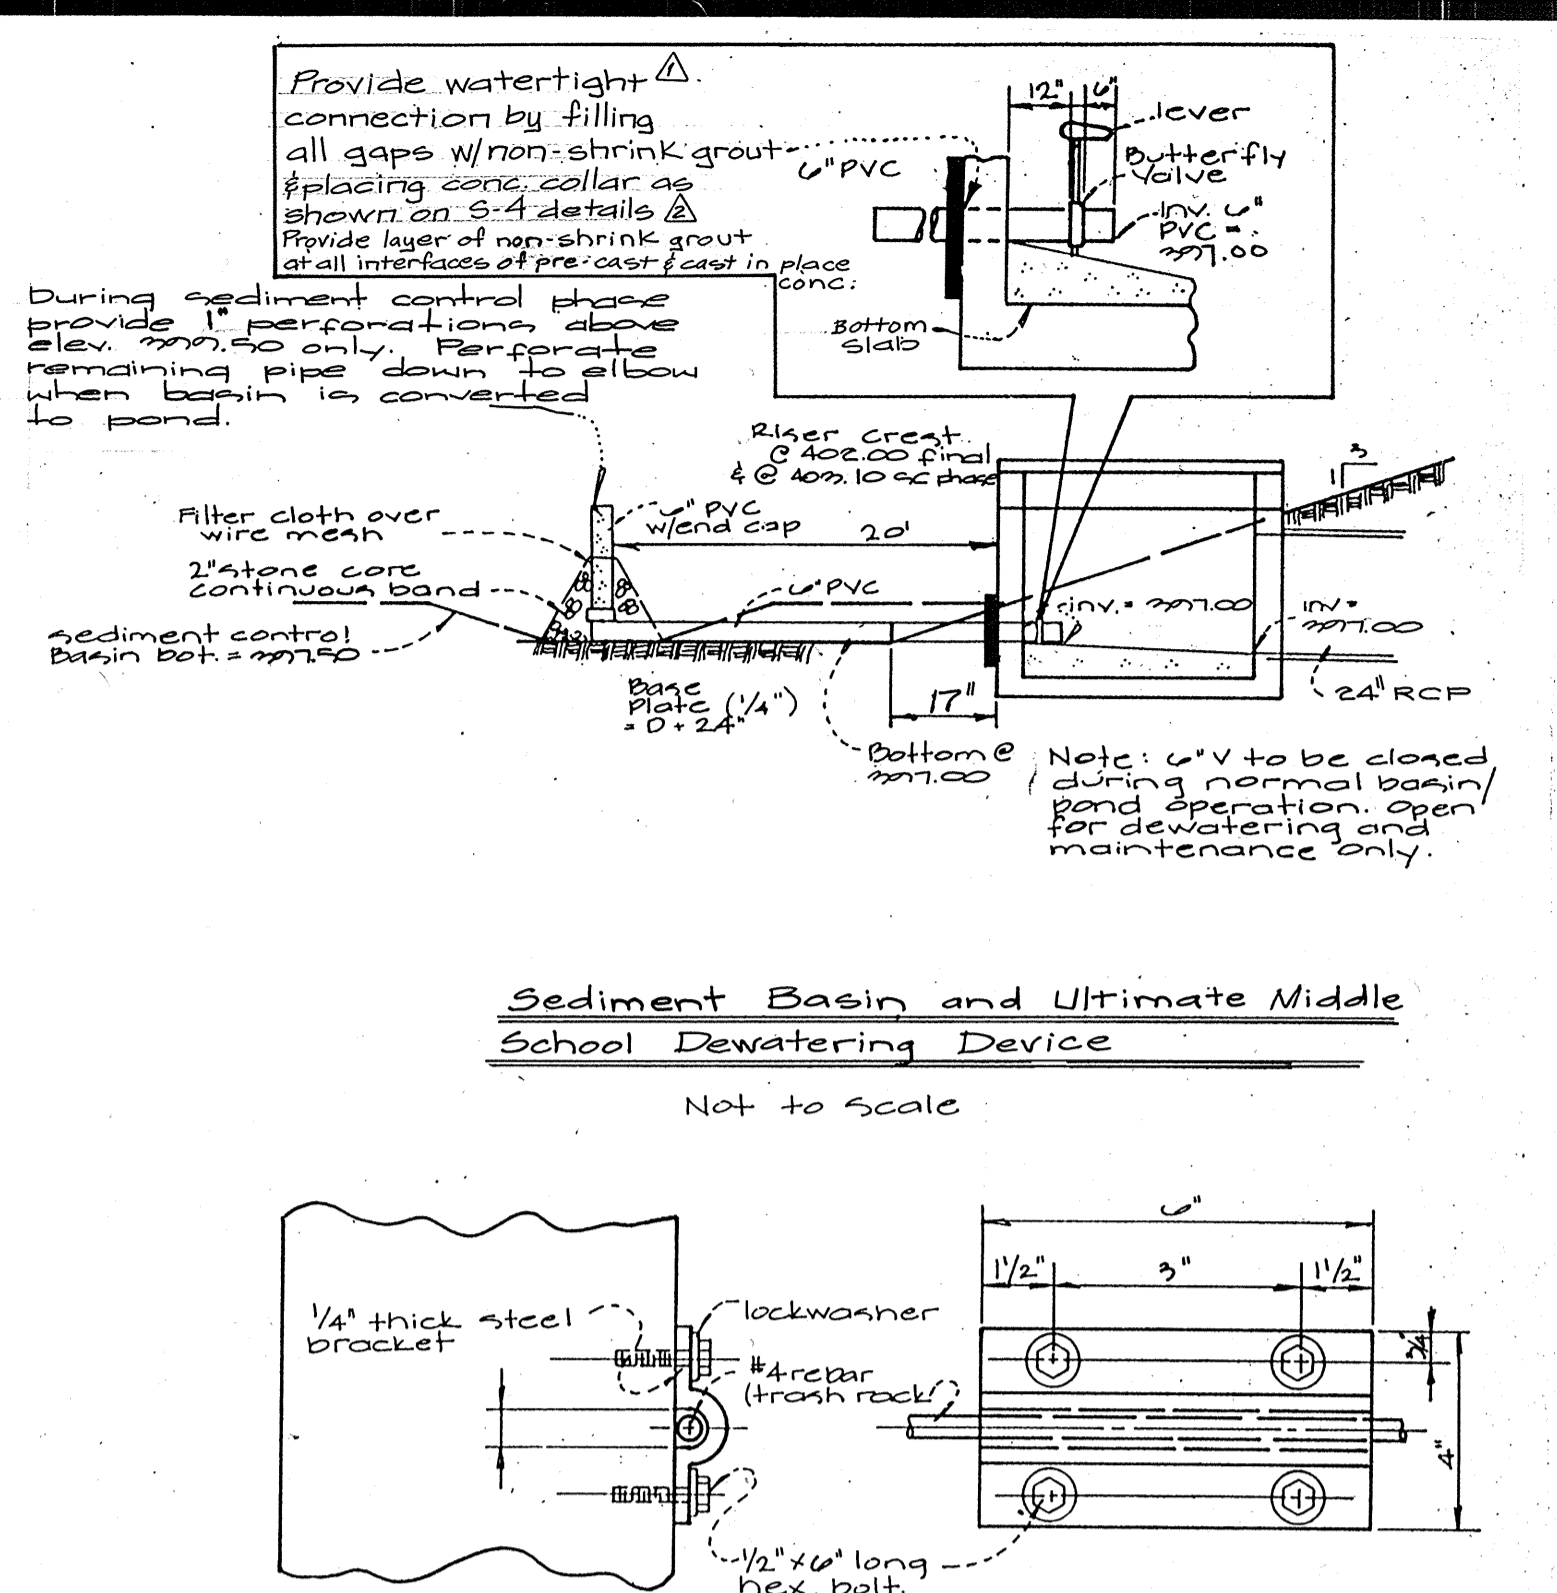 Provide watertight 1
connection by filling
all gaps w/non-shrink grout
& placing conc. collar as
shown on S-4 details 2
Provide layer of non-shrink grout
at all interfaces of pre-cast & cast in place
conc.
6" PVC
12"
6"
lever
Butterfly
Valve
Inv. 6"
PVC =
397.00
Bottom
slab
During sediment control phase
provide 1" perforations above
elev. 399.50 only. Perforate
remaining pipe down to elbow
when basin is converted
to pond.
Riser Crest
@ 402.00 final
& @ 403.10 SC phase
3
1
Filter cloth over
wire mesh
6" PVC
w/end cap
20'
2" stone core
continuous band
6" PVC
inv. = 397.00
inv =
397.00
Sediment control
Basin bot. = 397.50
24" RCP
Base
Plate (1/4")
= D + 24"
17"
Bottom @
397.00
Note: 6" V to be closed
during normal basin/
pond operation. Open
for dewatering and
maintenance only.
Sediment Basin and Ultimate Middle
School Dewatering Device
Not to scale
1/4" thick steel
bracket
lockwasher
#4 rebar
(trash rack)
1/2" x 6" long
hex. bolt.
6"
1 1/2"
3"
1 1/2"
3/4"
4"